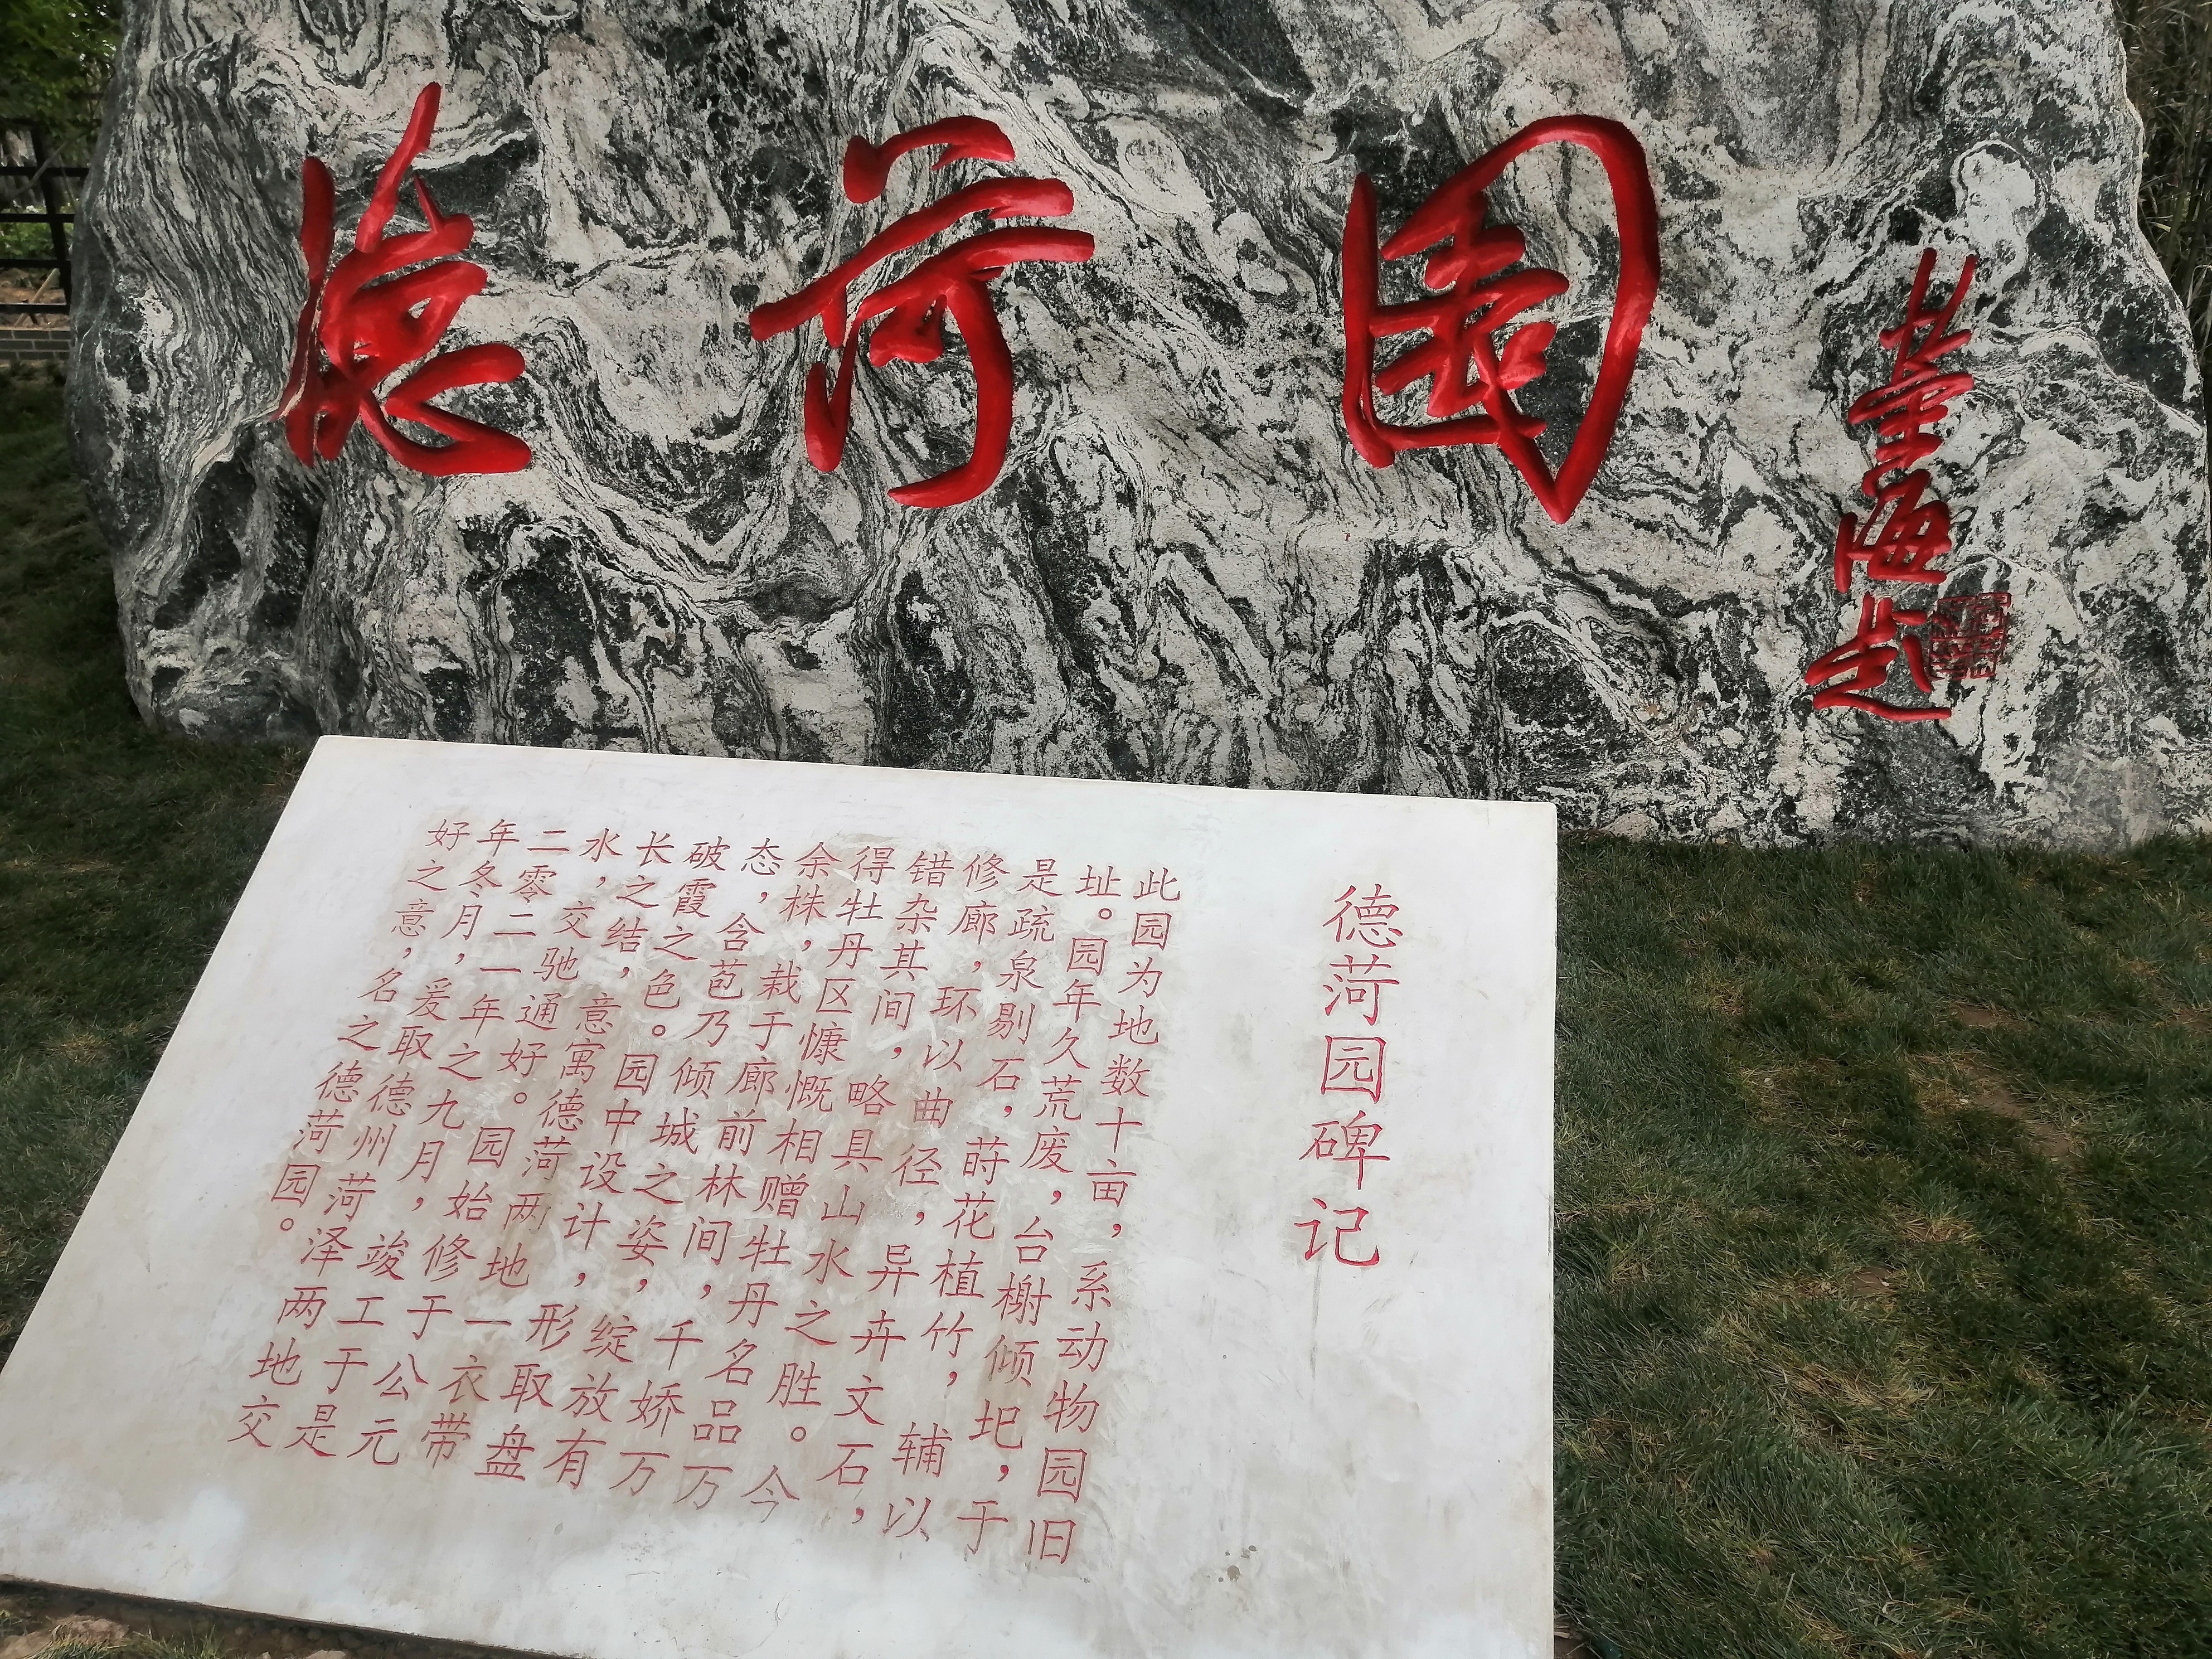 德菏園
德菏园碑记
此园为地数十亩，系动物园旧
址。园年久荒废，台榭倾圮，于
是疏泉剔石，莳花植竹，辅以
修廊，环以曲径，异卉文石，
错杂其间，略具山水之胜。今
得牡丹区慷慨相赠牡丹名品万
余株，栽于廊前林间，千娇万
态，含苞乃倾城之姿，绽放有
破霞之色。园中设计，形取盘
长之结，意寓德菏两地一衣带
水，交驰通好。园始修于公元
二零二一年之九月，竣工于是
年冬月，爰取德州菏泽两地交
好之意，名之德菏园。